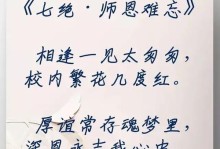 《七绝·师恩难忘》
相逢一见太匆匆，
校内繁花几度红。
厚谊常存魂梦里，
深恩永志我心中。